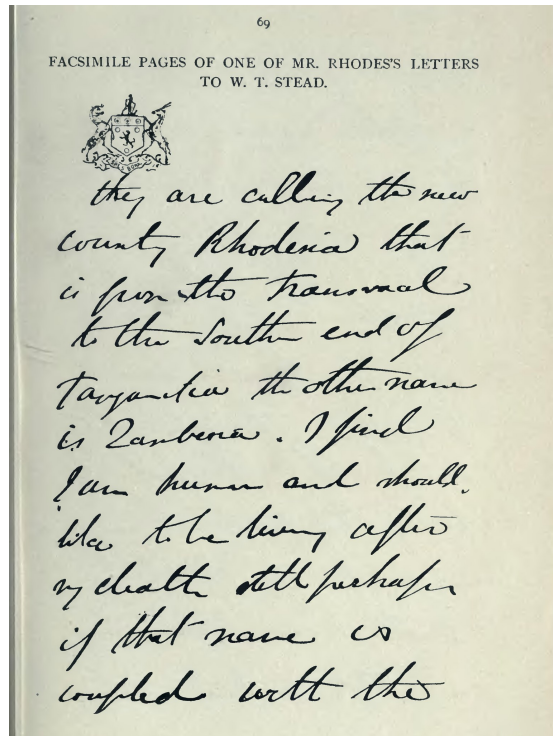 69
FACSIMILE PAGES OF ONE OF MR. RHODES'S LETTERS
TO W. T. STEAD.
they are calling the new
county Rhodesia that
is from the transvaal
to the southern end of
Tanganika the other name
is Zambesia. I find
I am human and should
like to be living after
my death still perhaps
if that name is
coupled with the